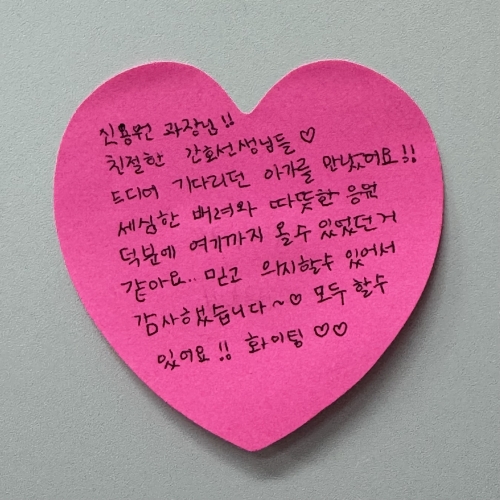 신용원 과장님!!
친절한 간호선생님들♡
드디어 기다리던 아가를 만났어요!!
세심한 배려와 따뜻한 응원
덕분에 여기까지 올수 있었던거
같아요.. 믿고 의지할수 있어서
감사했습니다~♡ 모두 할수
있어요!! 화이팅 ♡♡